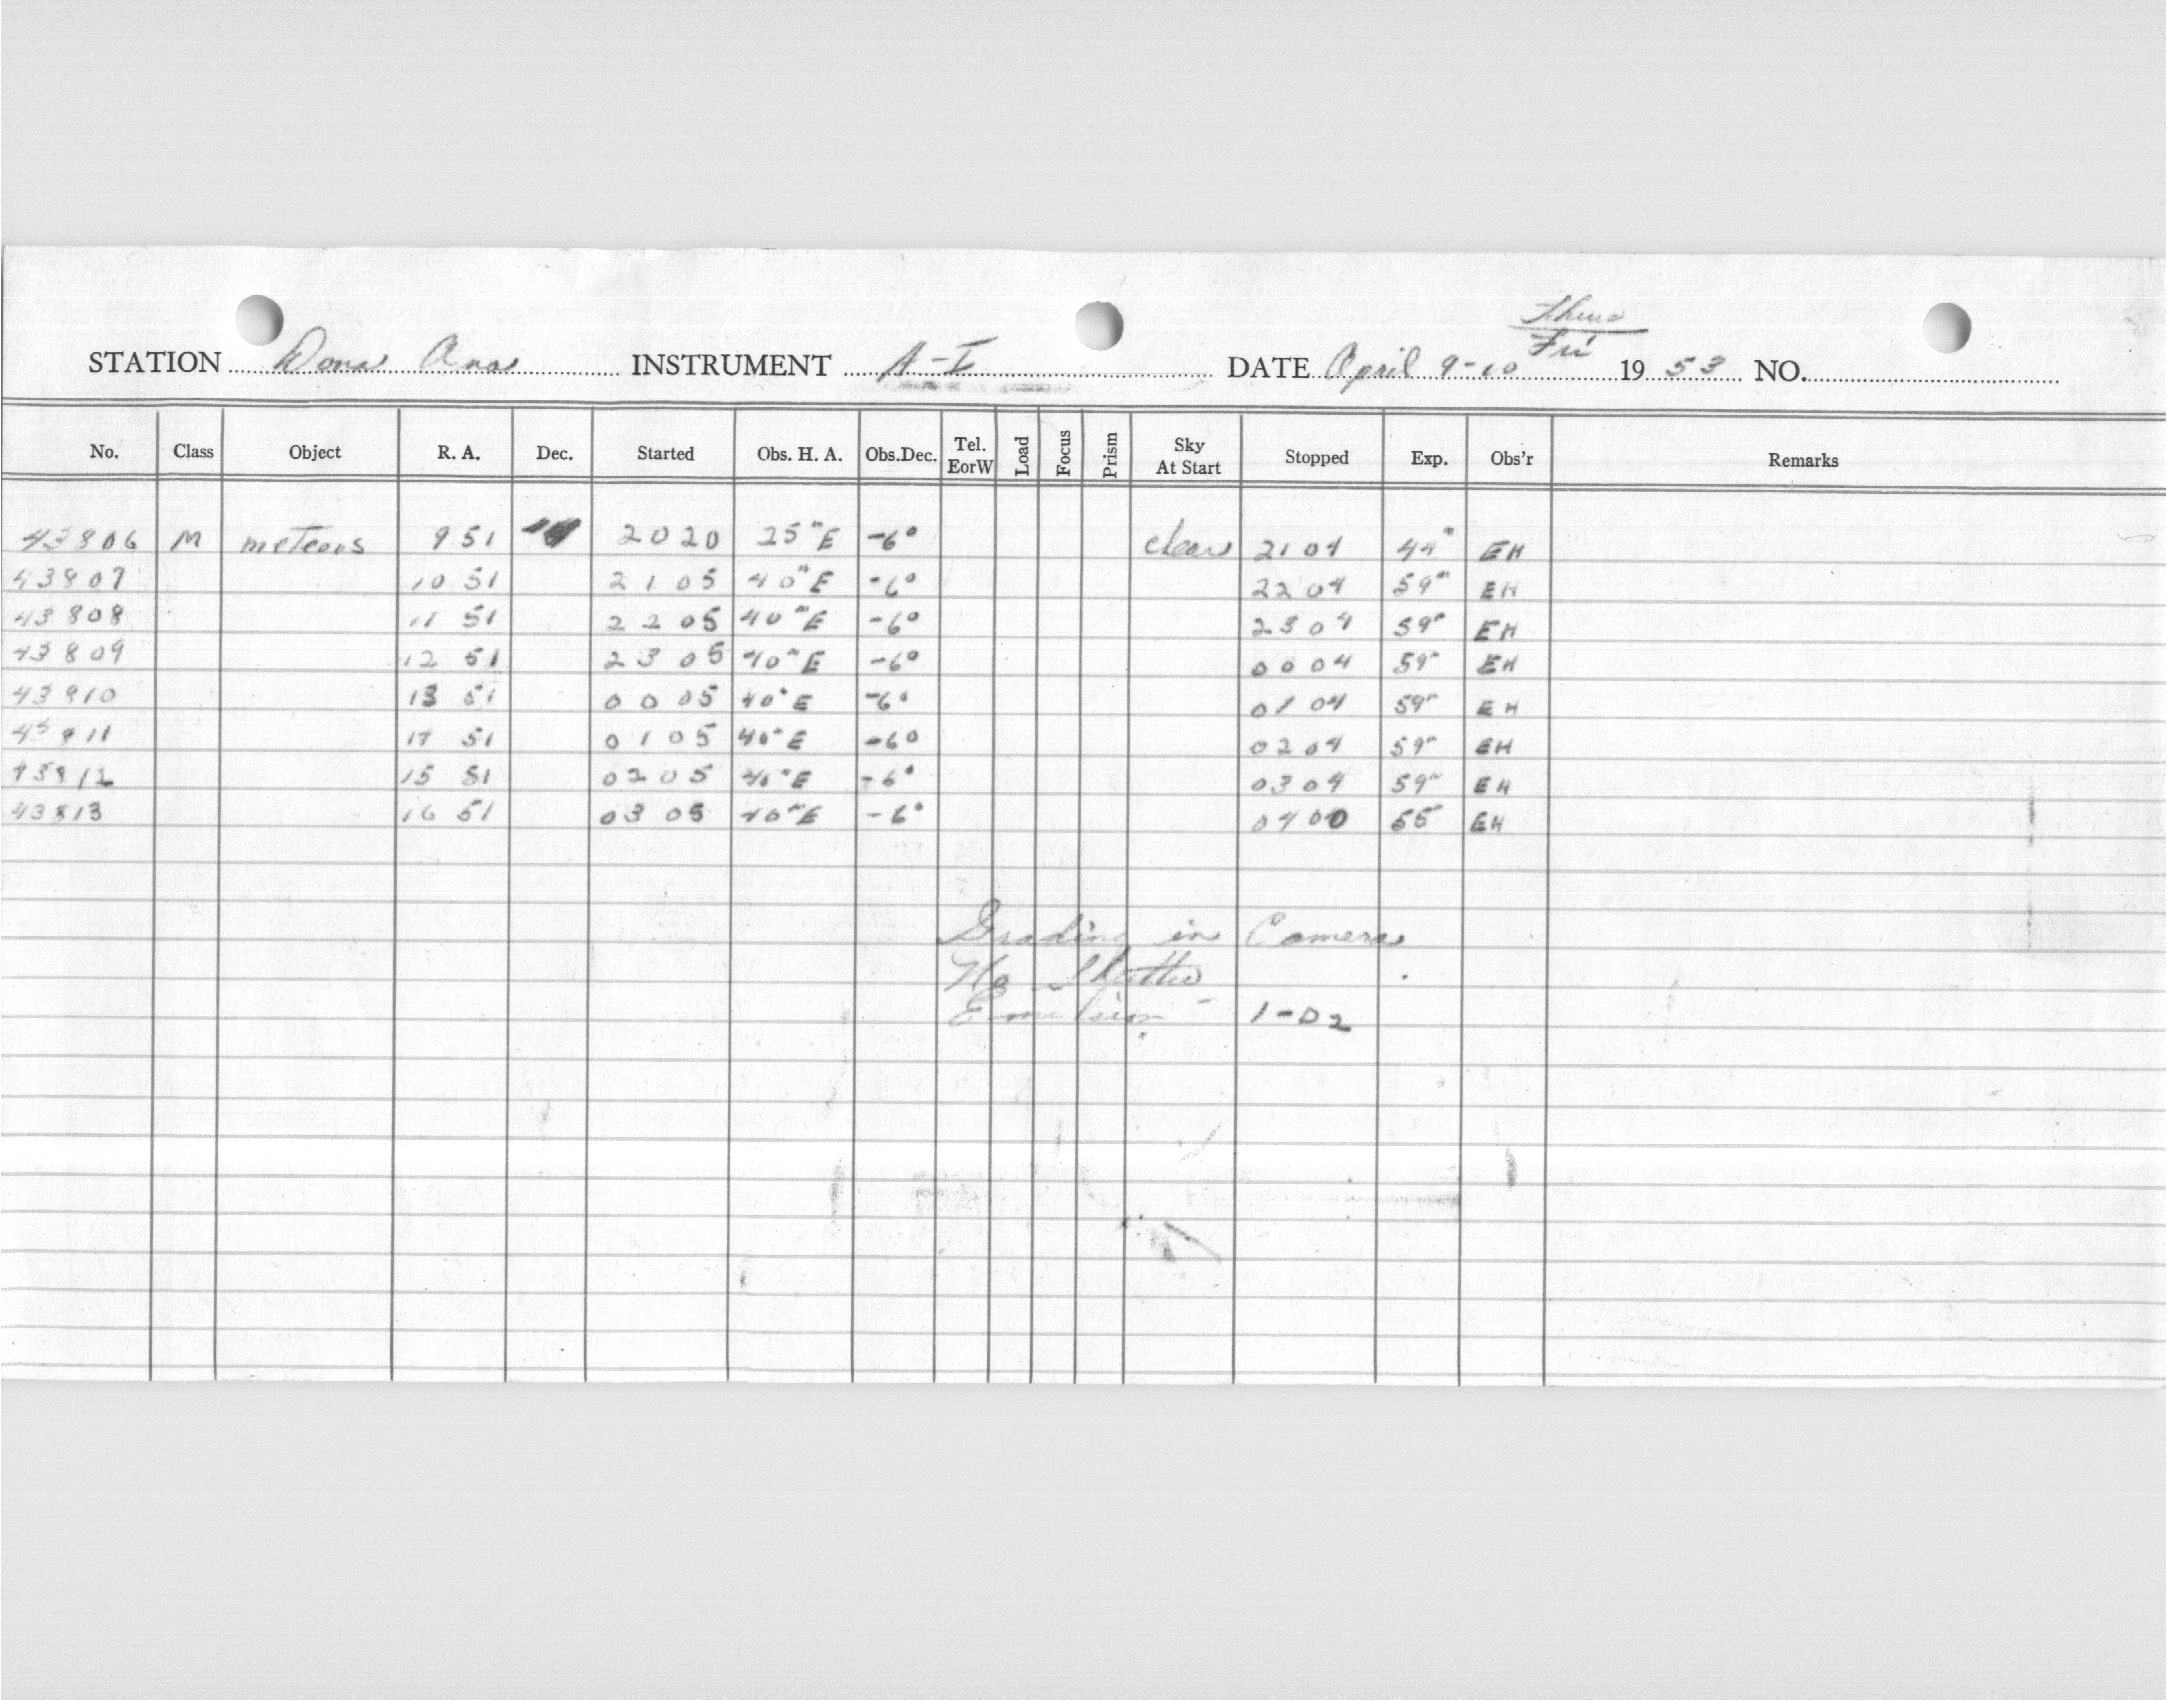 Thurs
STATION Dona Ana INSTRUMENT A-I DATE April 9-10 Fri 1953 NO.
No. Class Object R. A. Dec. Started Obs. H. A. Obs.Dec. Tel. EorW Load Focus Prism Sky At Start Stopped Exp. Obs'r Remarks
43806 M meteors 9 51 2020 25m E -6° clear 2104 44m EH
43807 10 51 2105 40m E -6° 2204 59m EH
43808 11 51 2205 40m E -6° 2304 59m EH
43809 12 51 2305 40m E -6° 0004 59m EH
43810 13 51 0005 40m E -6° 0104 59m EH
43811 14 51 0105 40m E -6° 0204 59m EH
43812 15 51 0205 40m E -6° 0304 59m EH
43813 16 51 0305 40m E -6° 0400 55 EH
in Camera
No Shutter
Emulsion - 1-D2